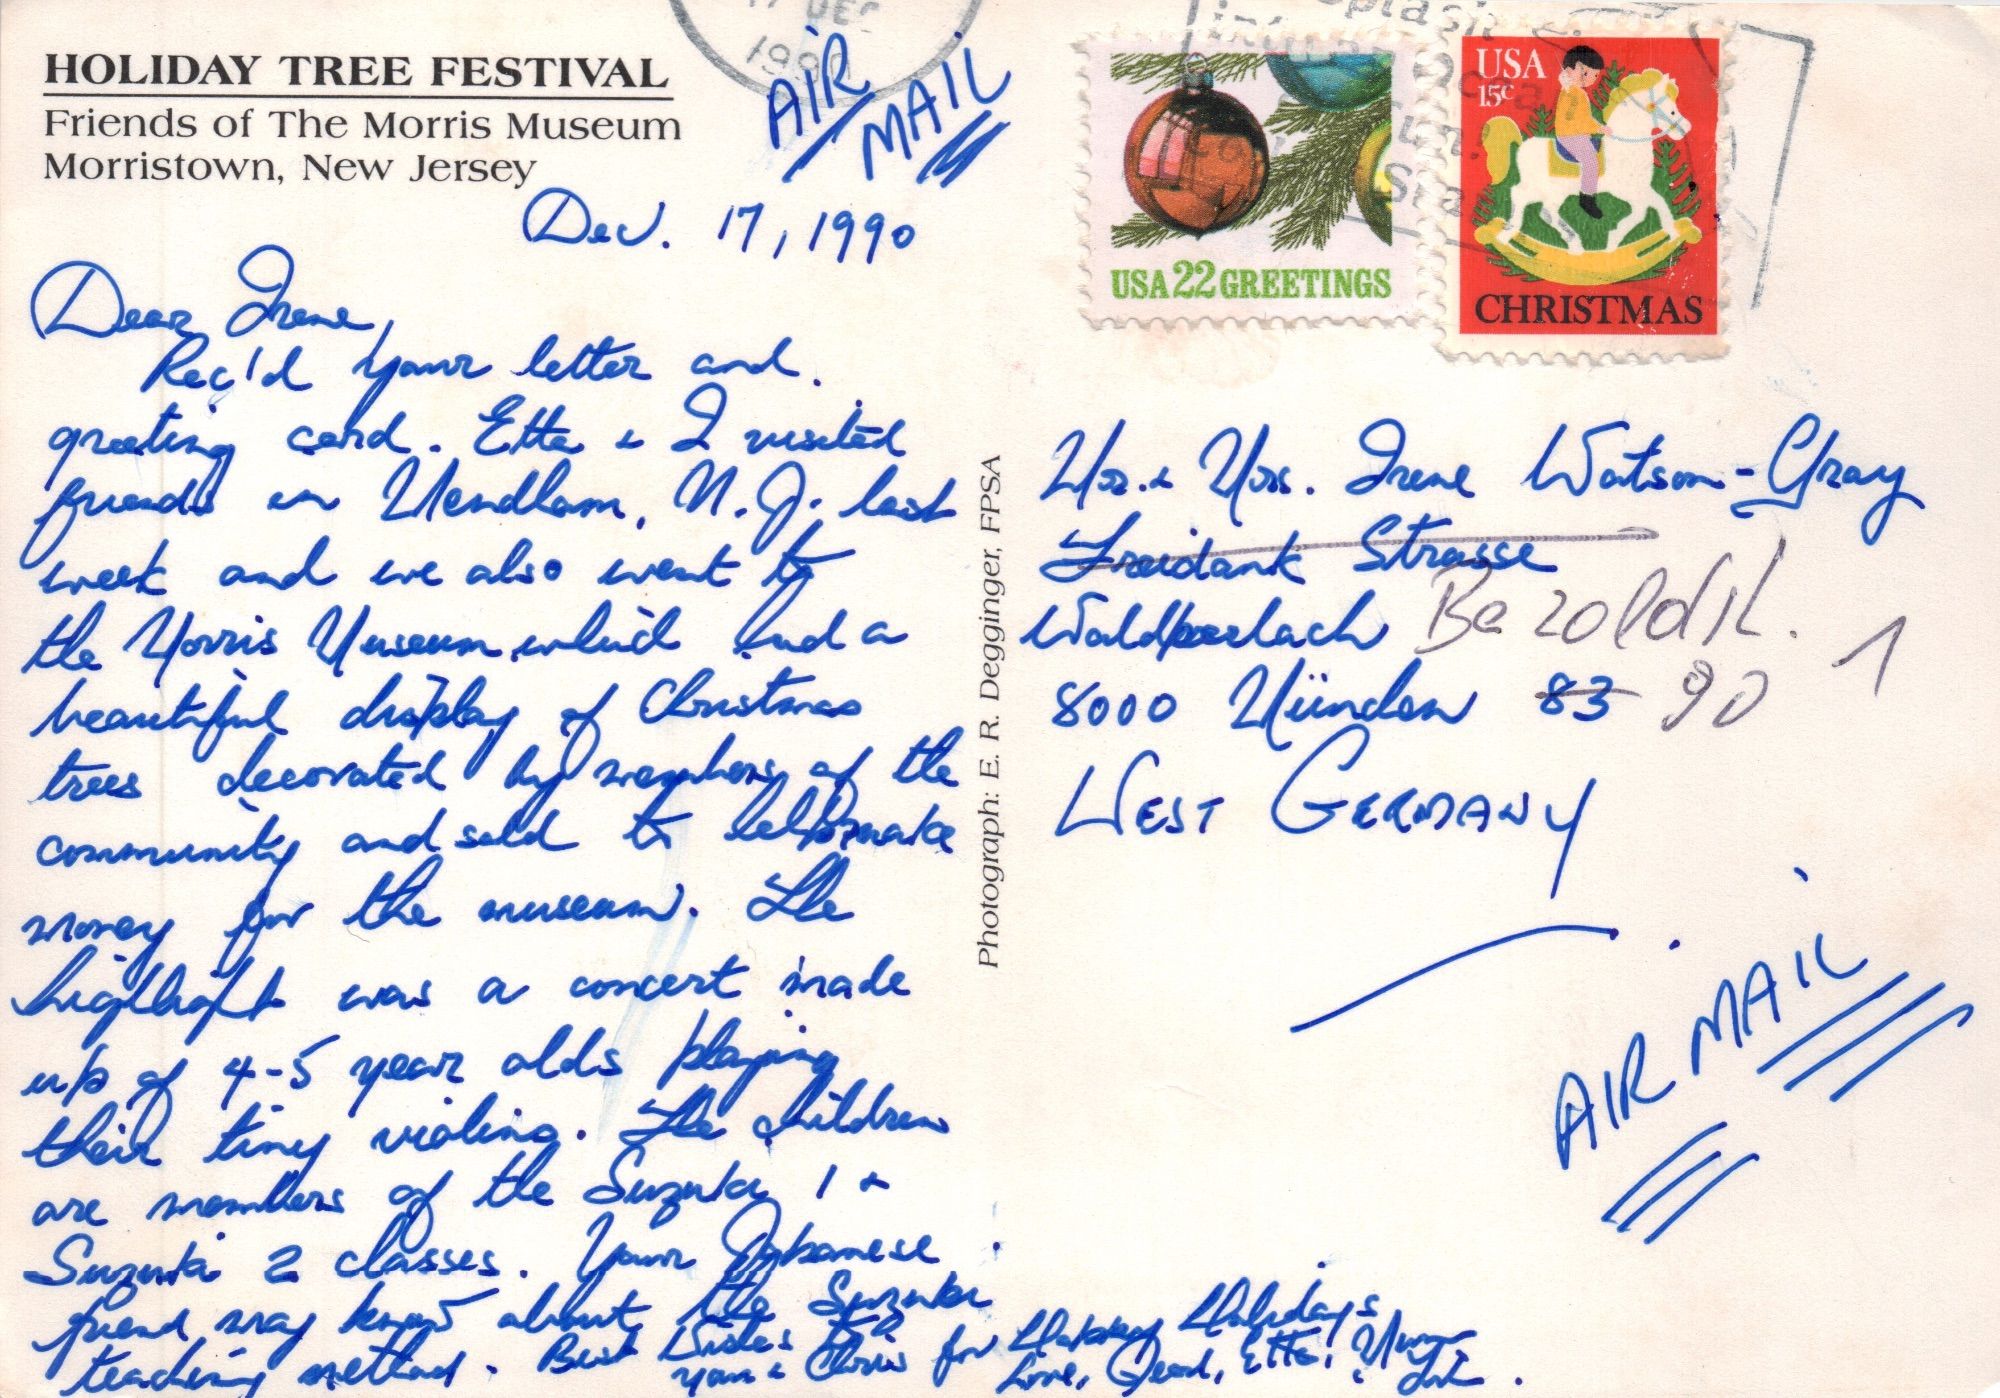 HOLIDAY TREE FESTIVAL
Friends of The Morris Museum
Morristown, New Jersey
17 DEC
1990
AIR
MAIL
USA 22 GREETINGS
USA
15c
CHRISTMAS
Dec. 17, 1990
Dear Irene,
Rec'd your letter and
greeting card. Etta & I visited
friends in Mendham, N.J. last
week and we also went to
the Morris Museum which had a
beautiful display of Christmas
trees decorated by members of the
community and sold to help make
money for the museum. The
highlight was a concert made
up of 4-5 year olds playing
their tiny violins. The children
are members of the Suzuki 1 &
Suzuki 2 classes. Your Japanese
friend may know about the Suzuki
teaching method. Best Wishes to
you & Chris for Happy Holidays
Love, Etta,
Photograph: E. R. Degginger, FPSA
Mr. & Mrs. Irene Watson-Gray
Freidank Strasse
Waldperlach
Bezoldstr. 1
8000 München 83 90
WEST GERMANY
AIR MAIL